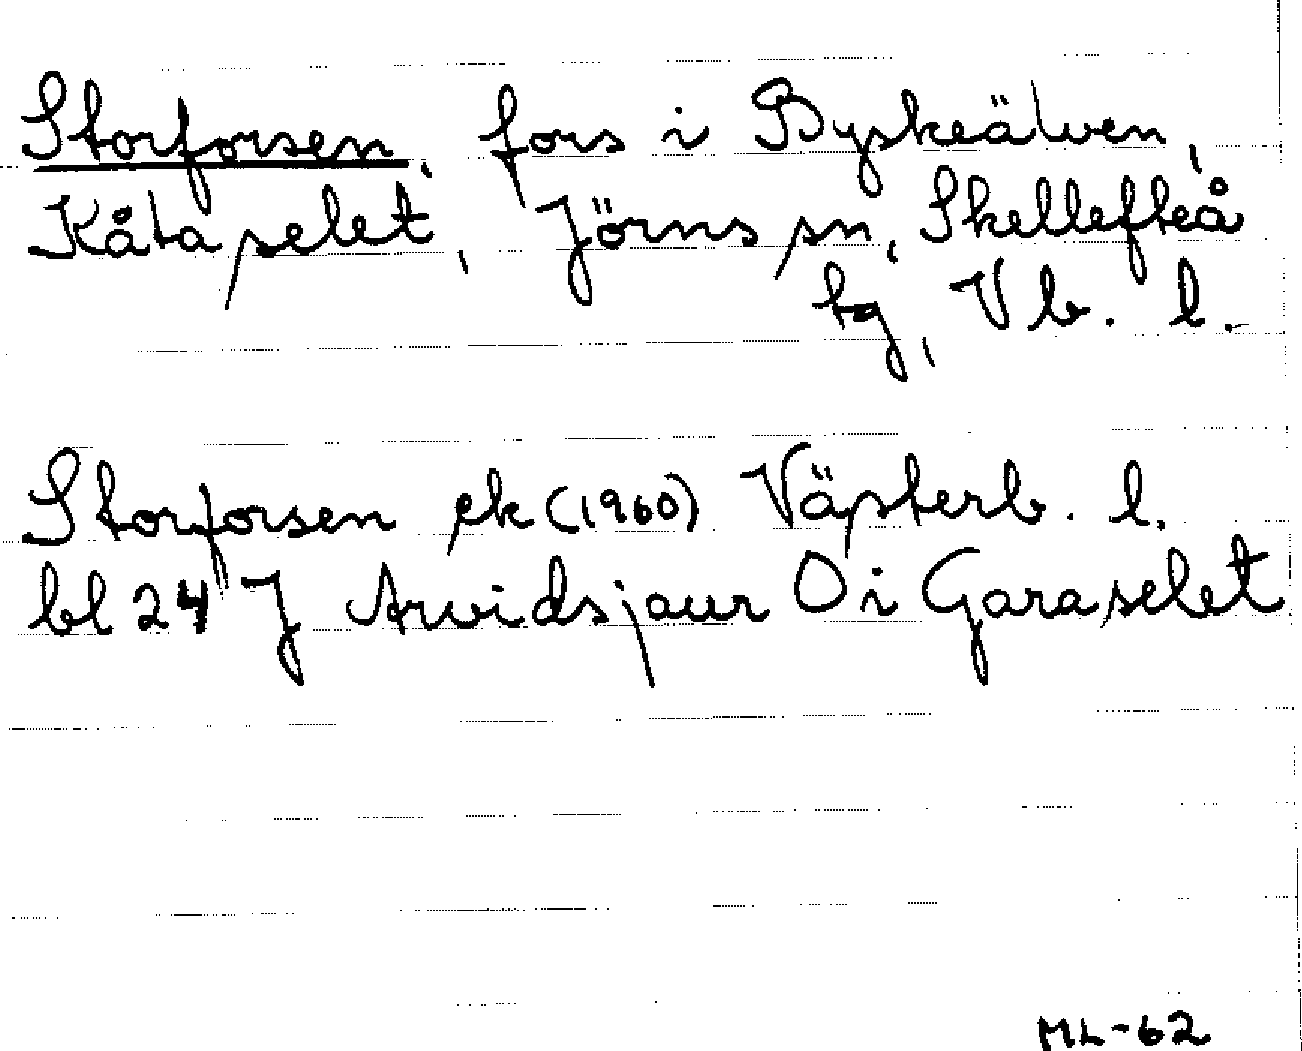 Storforsen, fors i Byskeälven,
Kåtaselet, Jörns sn, Skellefteå
tg, Vb. l.
Storforsen ek (1960) Västerb. l.
bl 24 J Arvidsjaur O i Garaselet
ML-62